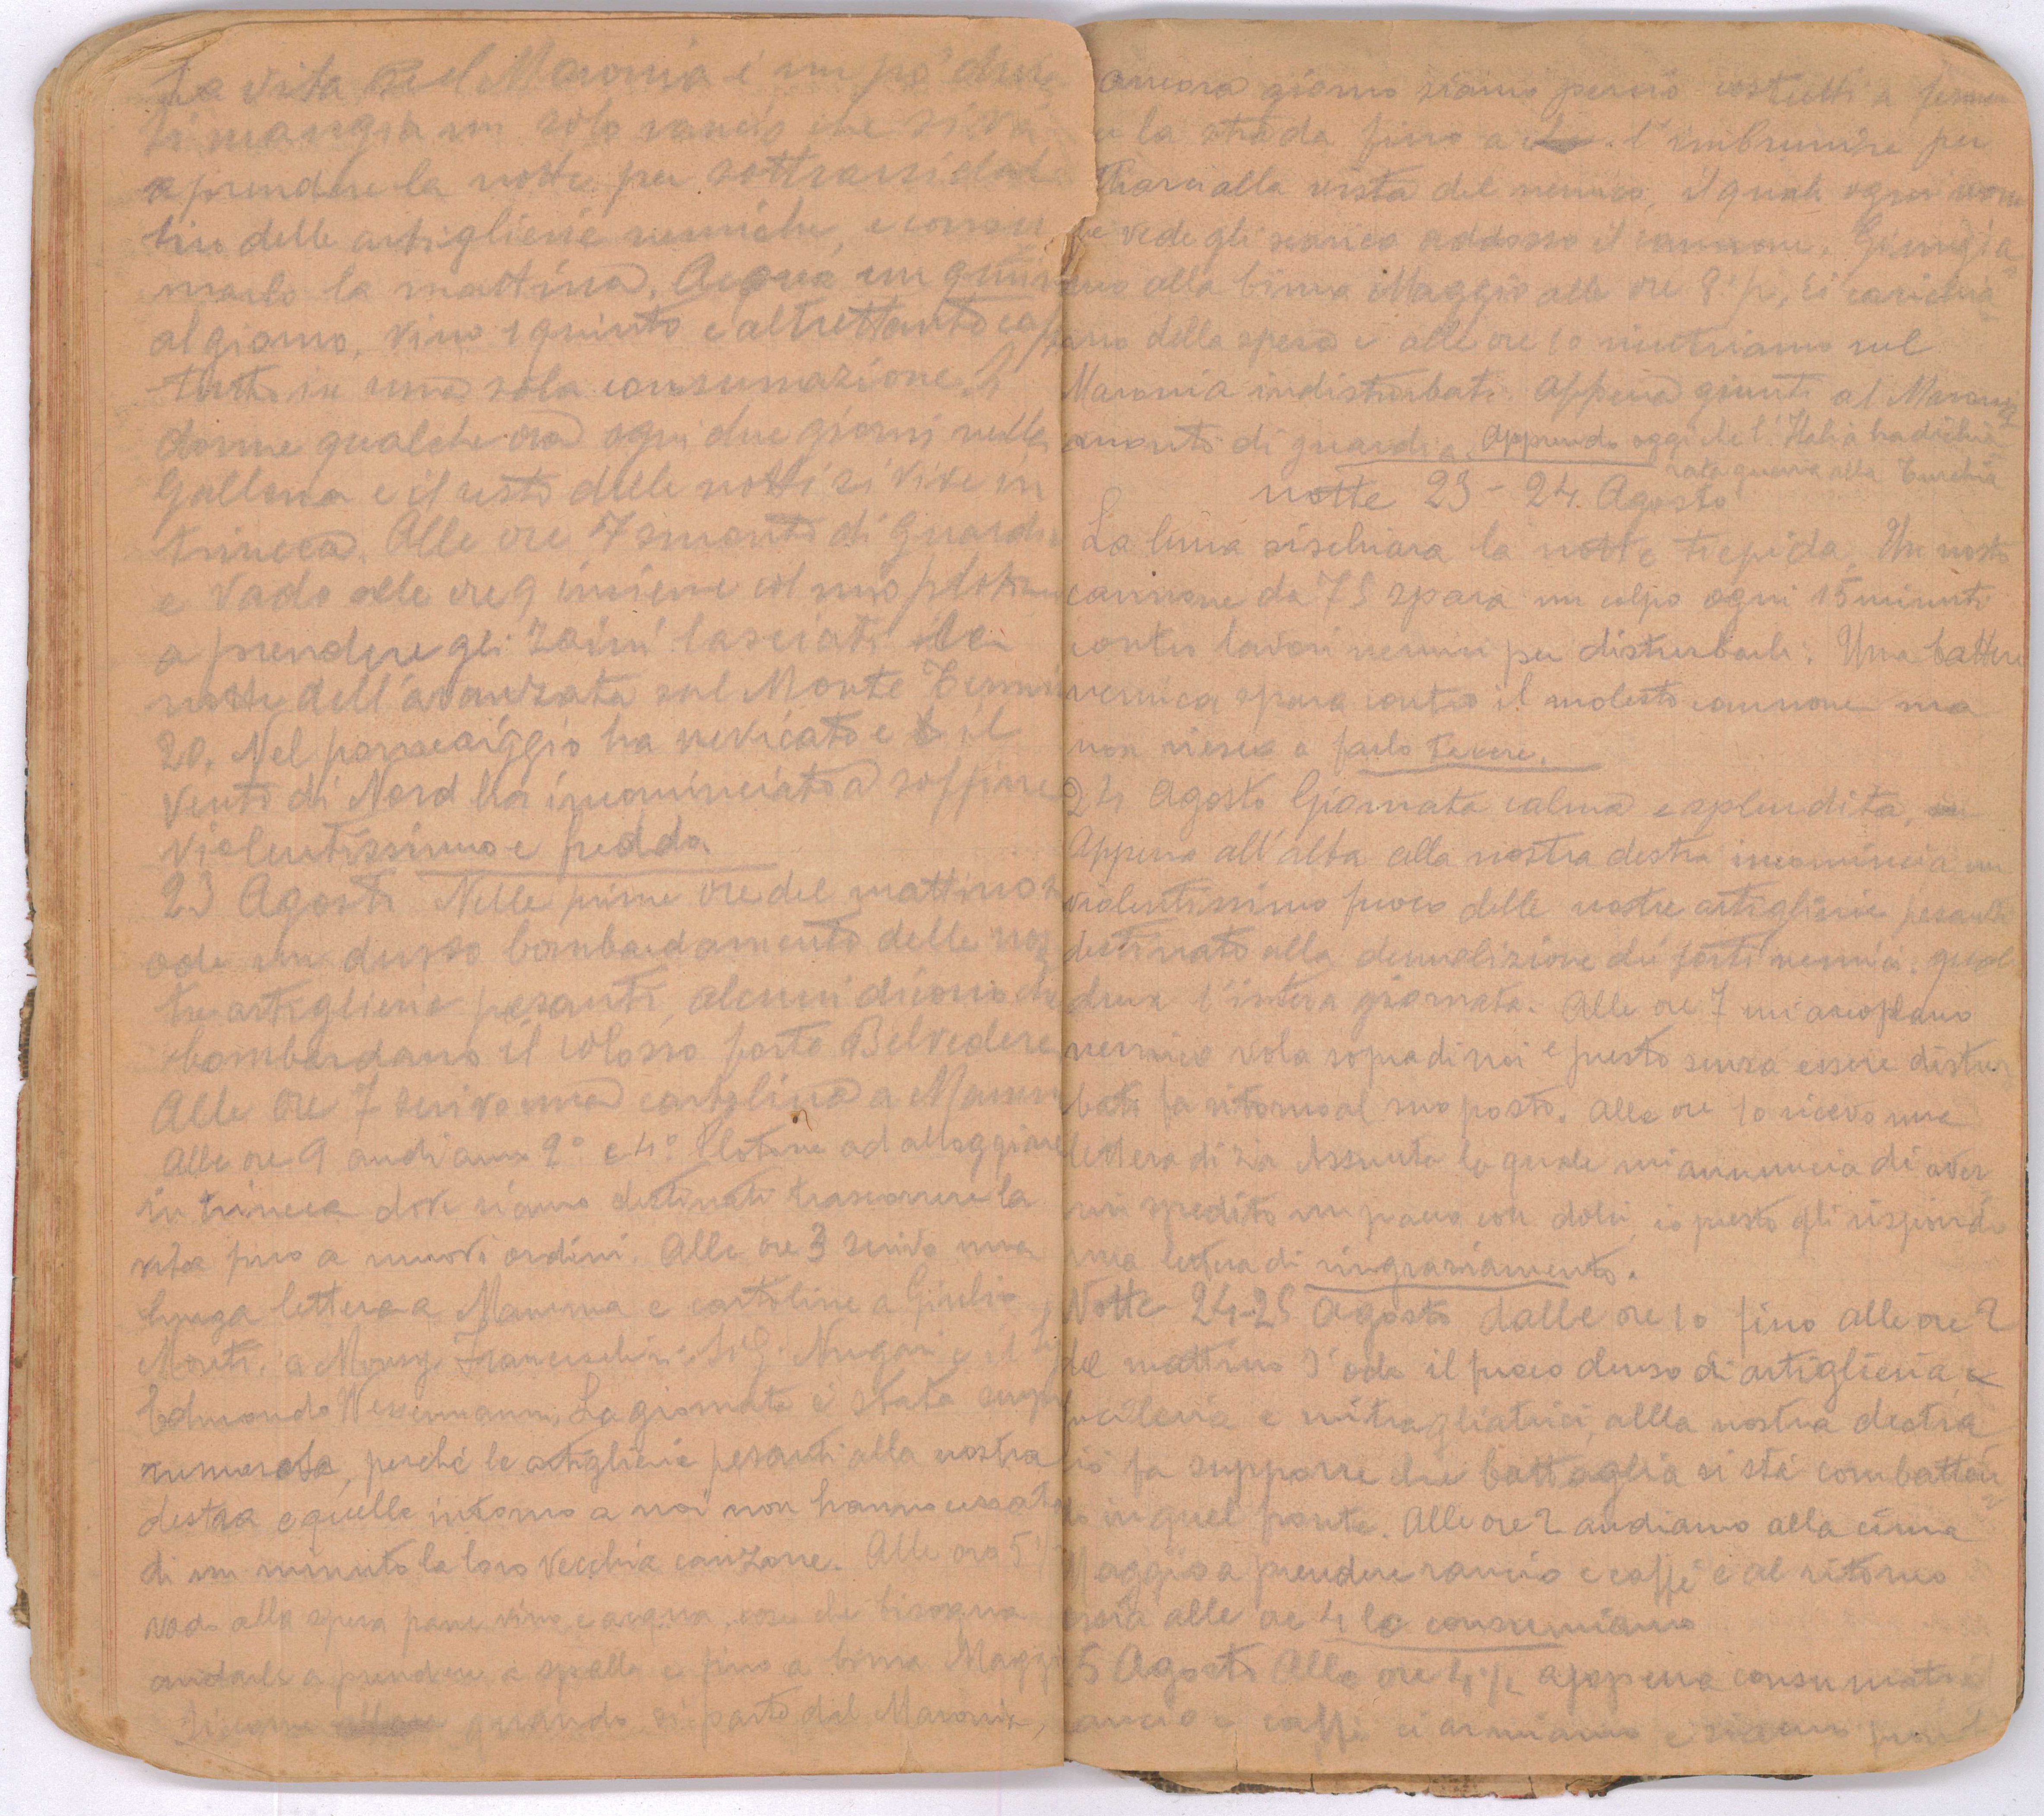 La vita sul Maronia è un pò dura
si mangia un solo rancio che si va
a prendere la notte per sottrarsi dal
tiro delle artiglierie nemiche, e consu
marlo la mattina. Acqua un quinto
al giorno, vino 1 quinto e altrettanto caffè
tutto in una sola consumazione. Si
dorme qualche ora ogni due giorni nella
Galleria e il resto delle notti si vive in
trincea. Alle ore 7 smonto di guardia
e vado alle ore 9 insieme col mio plotone
a prendere gli zaini lasciati la
notte dell'avanzata sul Monte
20. Nel pomeriggio ha nevicato e il
vento di Nord ha incominciato a soffiare
violentissimo e freddo
23 Agosto Nelle prime ore del mattino si
ode un denso bombardamento delle nos
tre artiglierie pesanti, alcuni dicono che
bombardano il colosso forte Belvedere
Alle ore 7 scrivo una cartolina a Mamma
Alle ore 9 andiamo 2° e 4° Plotone ad alloggiare
in trincea dove siamo destinati trascorrere la
vita fino a nuovi ordini. Alle ore 3 scrivo una
lunga lettera a Mamma e cartoline a Giulio
Monti, a Monsg. Franceschini, Sig. Nugari e il
Edmondo Wessermann. La giornata è stata sempre
rumorosa, perché le artiglierie pesanti alla nostra
destra e quelle intorno a noi non hanno cessato
di un minuto la loro vecchia canzone. Alle ore 5
vado alla spesa pane vino e acqua, cose che bisogna
andarle a prendere a spalla e fino a Cima Maggio
bisogna quando si parte dal Maronia,
ancora giorno siamo perciò costretti a fermar
ci la strada fino a l'imbrunire per
alla vista del nemico, il quale ogni uomo
che vede gli scarica addosso il cannone. Giungia
mo alla Cima Maggio alle ore 8 p, ci carichia
mo della spesa e alle ore 10 rientriamo sul
Maronia indisturbati. Appena giunti al Maronia
smonto di guardia. Apprendo oggi che l'Italia ha dichia
rata guerra alla Turchia
notte 23 - 24. Agosto
La luna rischiara la notte tiepida. Un nostro
cannone da 75 spara un colpo ogni 15 minuti
contro lavori nemici per disturbarli. Una batteria
nemica spara contro il molesto cannone ma
non riesce a farlo tacere.
24 Agosto Giornata calma e splendita,
Appena all'alba alla nostra destra incomincia un
violentissimo fuoco delle nostre artiglierie pesanti
destinato alla demolizione dei forti nemici. quale
dura l'intera giornata. Alle ore 7 un areoplano
nemico vola sopra di noi e presto senza essere distur
bato fa ritorno al suo posto. Alle ore 10 ricevo una
lettera di zia Assunta la quale mi annuncia di aver
mi spedito un pacco con dolci, io presto gli rispondo
una lettera di ringraziamento.
Notte 24-25 Agosto dalle ore 10 fino alle ore 2
del mattino s'ode il fuoco denso di artiglieria,
fucileria e mitragliatrici, allla nostra destra
ciò fa supporre che battaglia si stà combatten
do in quel fronte. Alle ore 2 andiamo alla cima
Maggio a prendere rancio e caffè e al ritorno
ossia alle ore 4 lo consumiamo
25 Agosto Alle ore 4 1/2 appena consumato il
rancio e caffè ci armiamo e siamo